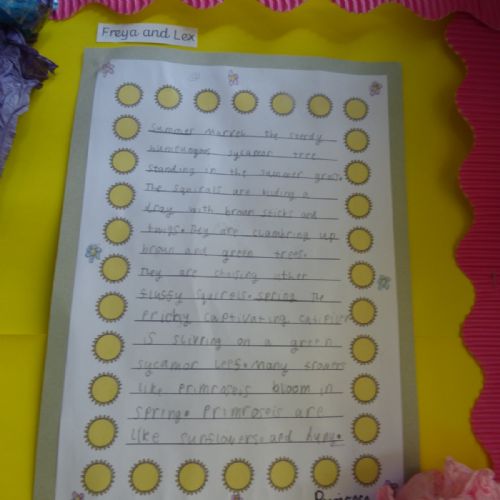 Freya and Lex
Summer Market the sterdy
humungous sycamor tree
standing in the summer grass.
The squirals are biding a
dray with broun sticks and
twigs. They are clambring up
broun and green trees.
They are chaising other
fluffy squirels. spring The
Prichy captivating catipiler
is slivring on a green
sycamor leef. Many flowers
like Primroseis bloom in
spring. Primroseis are
like sunflowers and